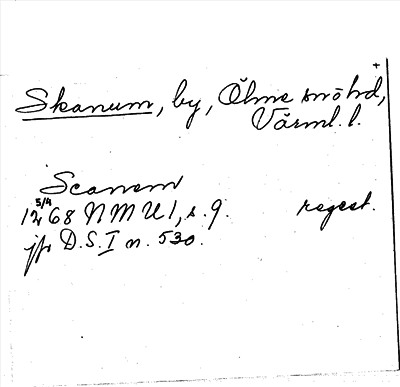 +
Skanum, by, Ölme snöhd,
Värml. l.
Scanem
5/4
1268 NMU 1, s. 9. regest.
jfr D.S. I n. 530.